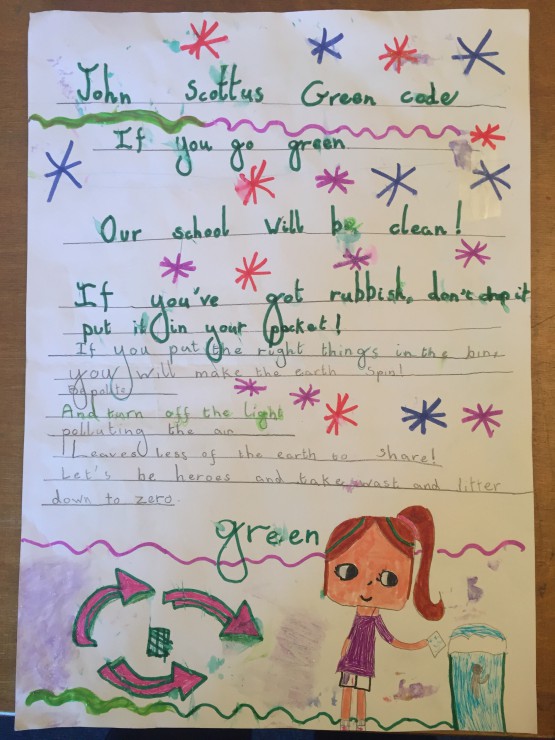 John Scottus Green code
If you go green
Our school will be clean!
If you've got rubbish, don't drop it
put it in your pocket!
If you put the right things in the bin,
you will make the earth spin!
Be polite
And turn off the light
polluting the air
Leaves less of the earth to share!
Let's be heroes and take wast and litter
down to zero.
green